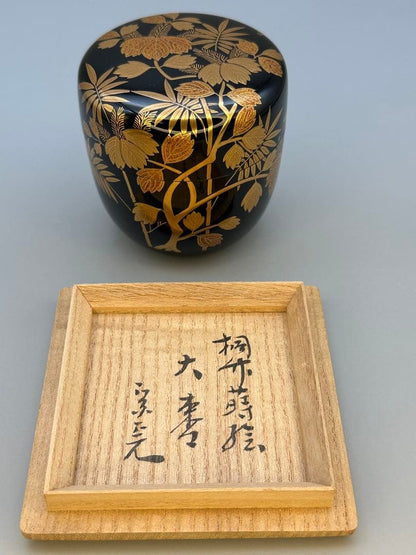 桐竹蒔絵
大棗